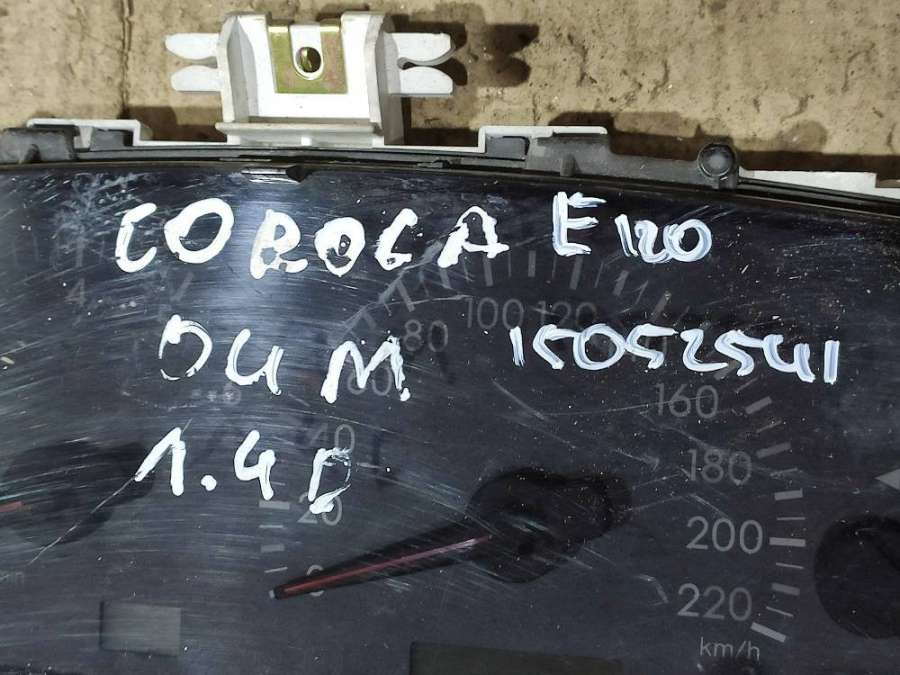 COROLA E120
04 M 15052541
1.4D
4
80 100 120
60
160
40
180
20
200
0
220
km/h